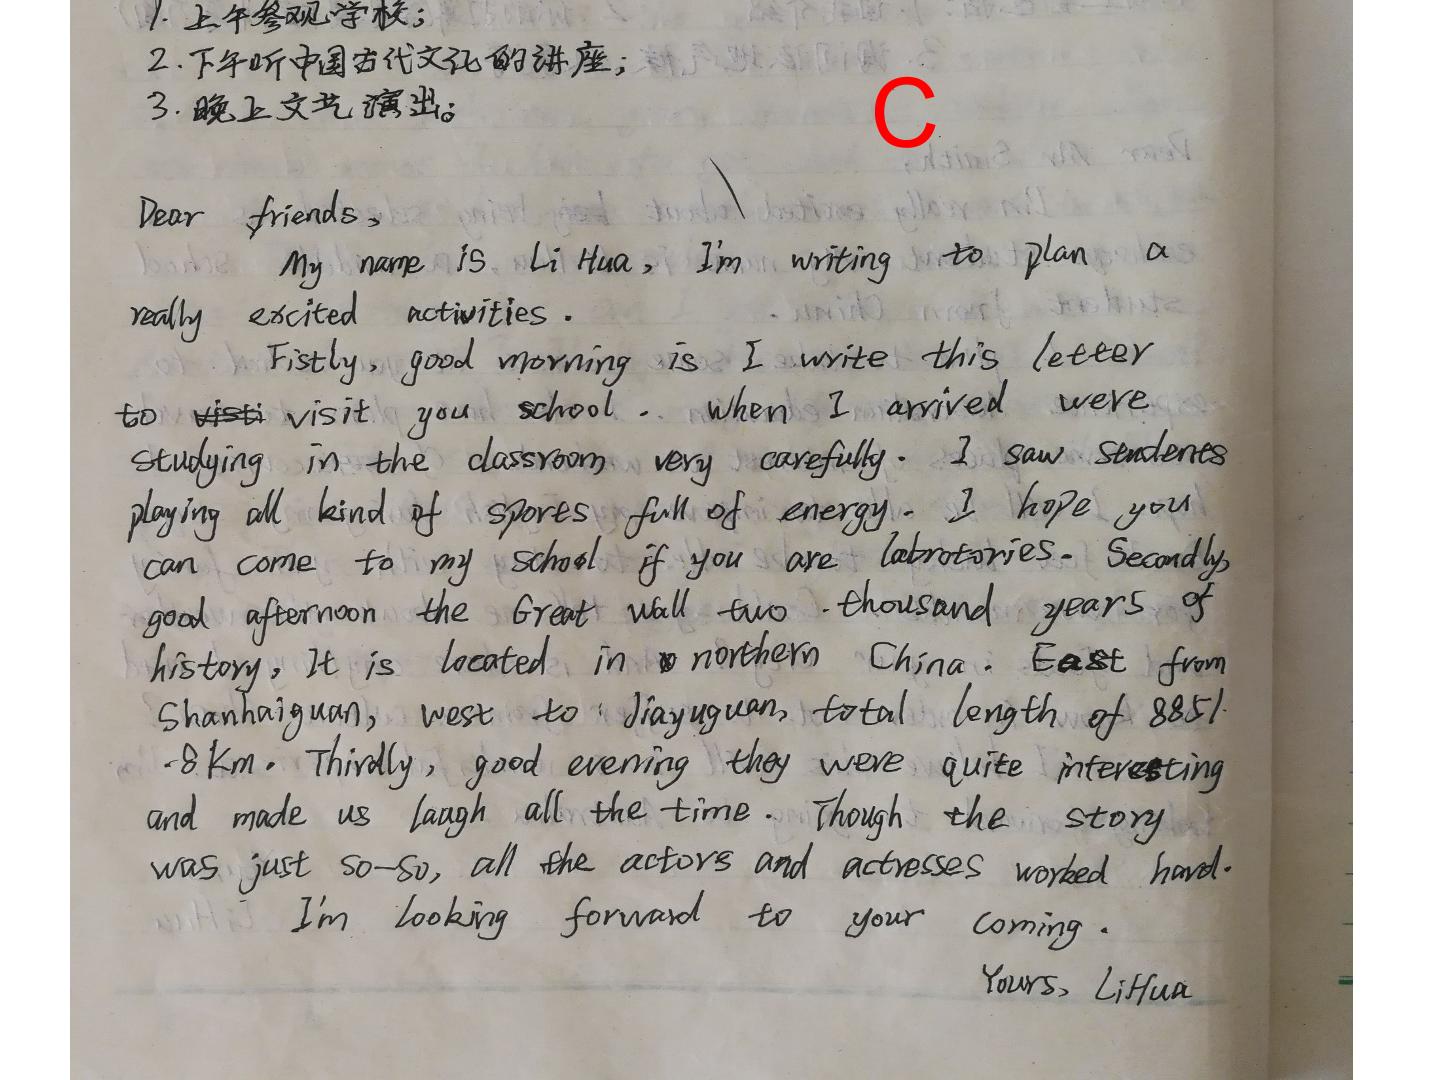 1. 上午参观学校;
2. 下午听中国古代文化的讲座;
3. 晚上文艺演出。
C
Dear friends,
My name is Li Hua, I'm writing to plan a
really excited activities.
Fistly, good morning is I write this letter
to visti visit you school. When I arrived were
studying in the classroom very carefully. I saw students
playing all kind of sports full of energy. I hope you
can come to my school if you are labrotories. Secondly,
good afternoon the Great wall two thousand years of
history, It is located in northern China. East from
Shanhaiguan, west to Jiayuguan, total length of 8851.
-8 Km. Thirdly, good evening they were quite interesting
and made us laugh all the time. Though the story
was just so-so, all the actors and actresses worked hard.
I'm looking forward to your coming.
Yours, LiHua